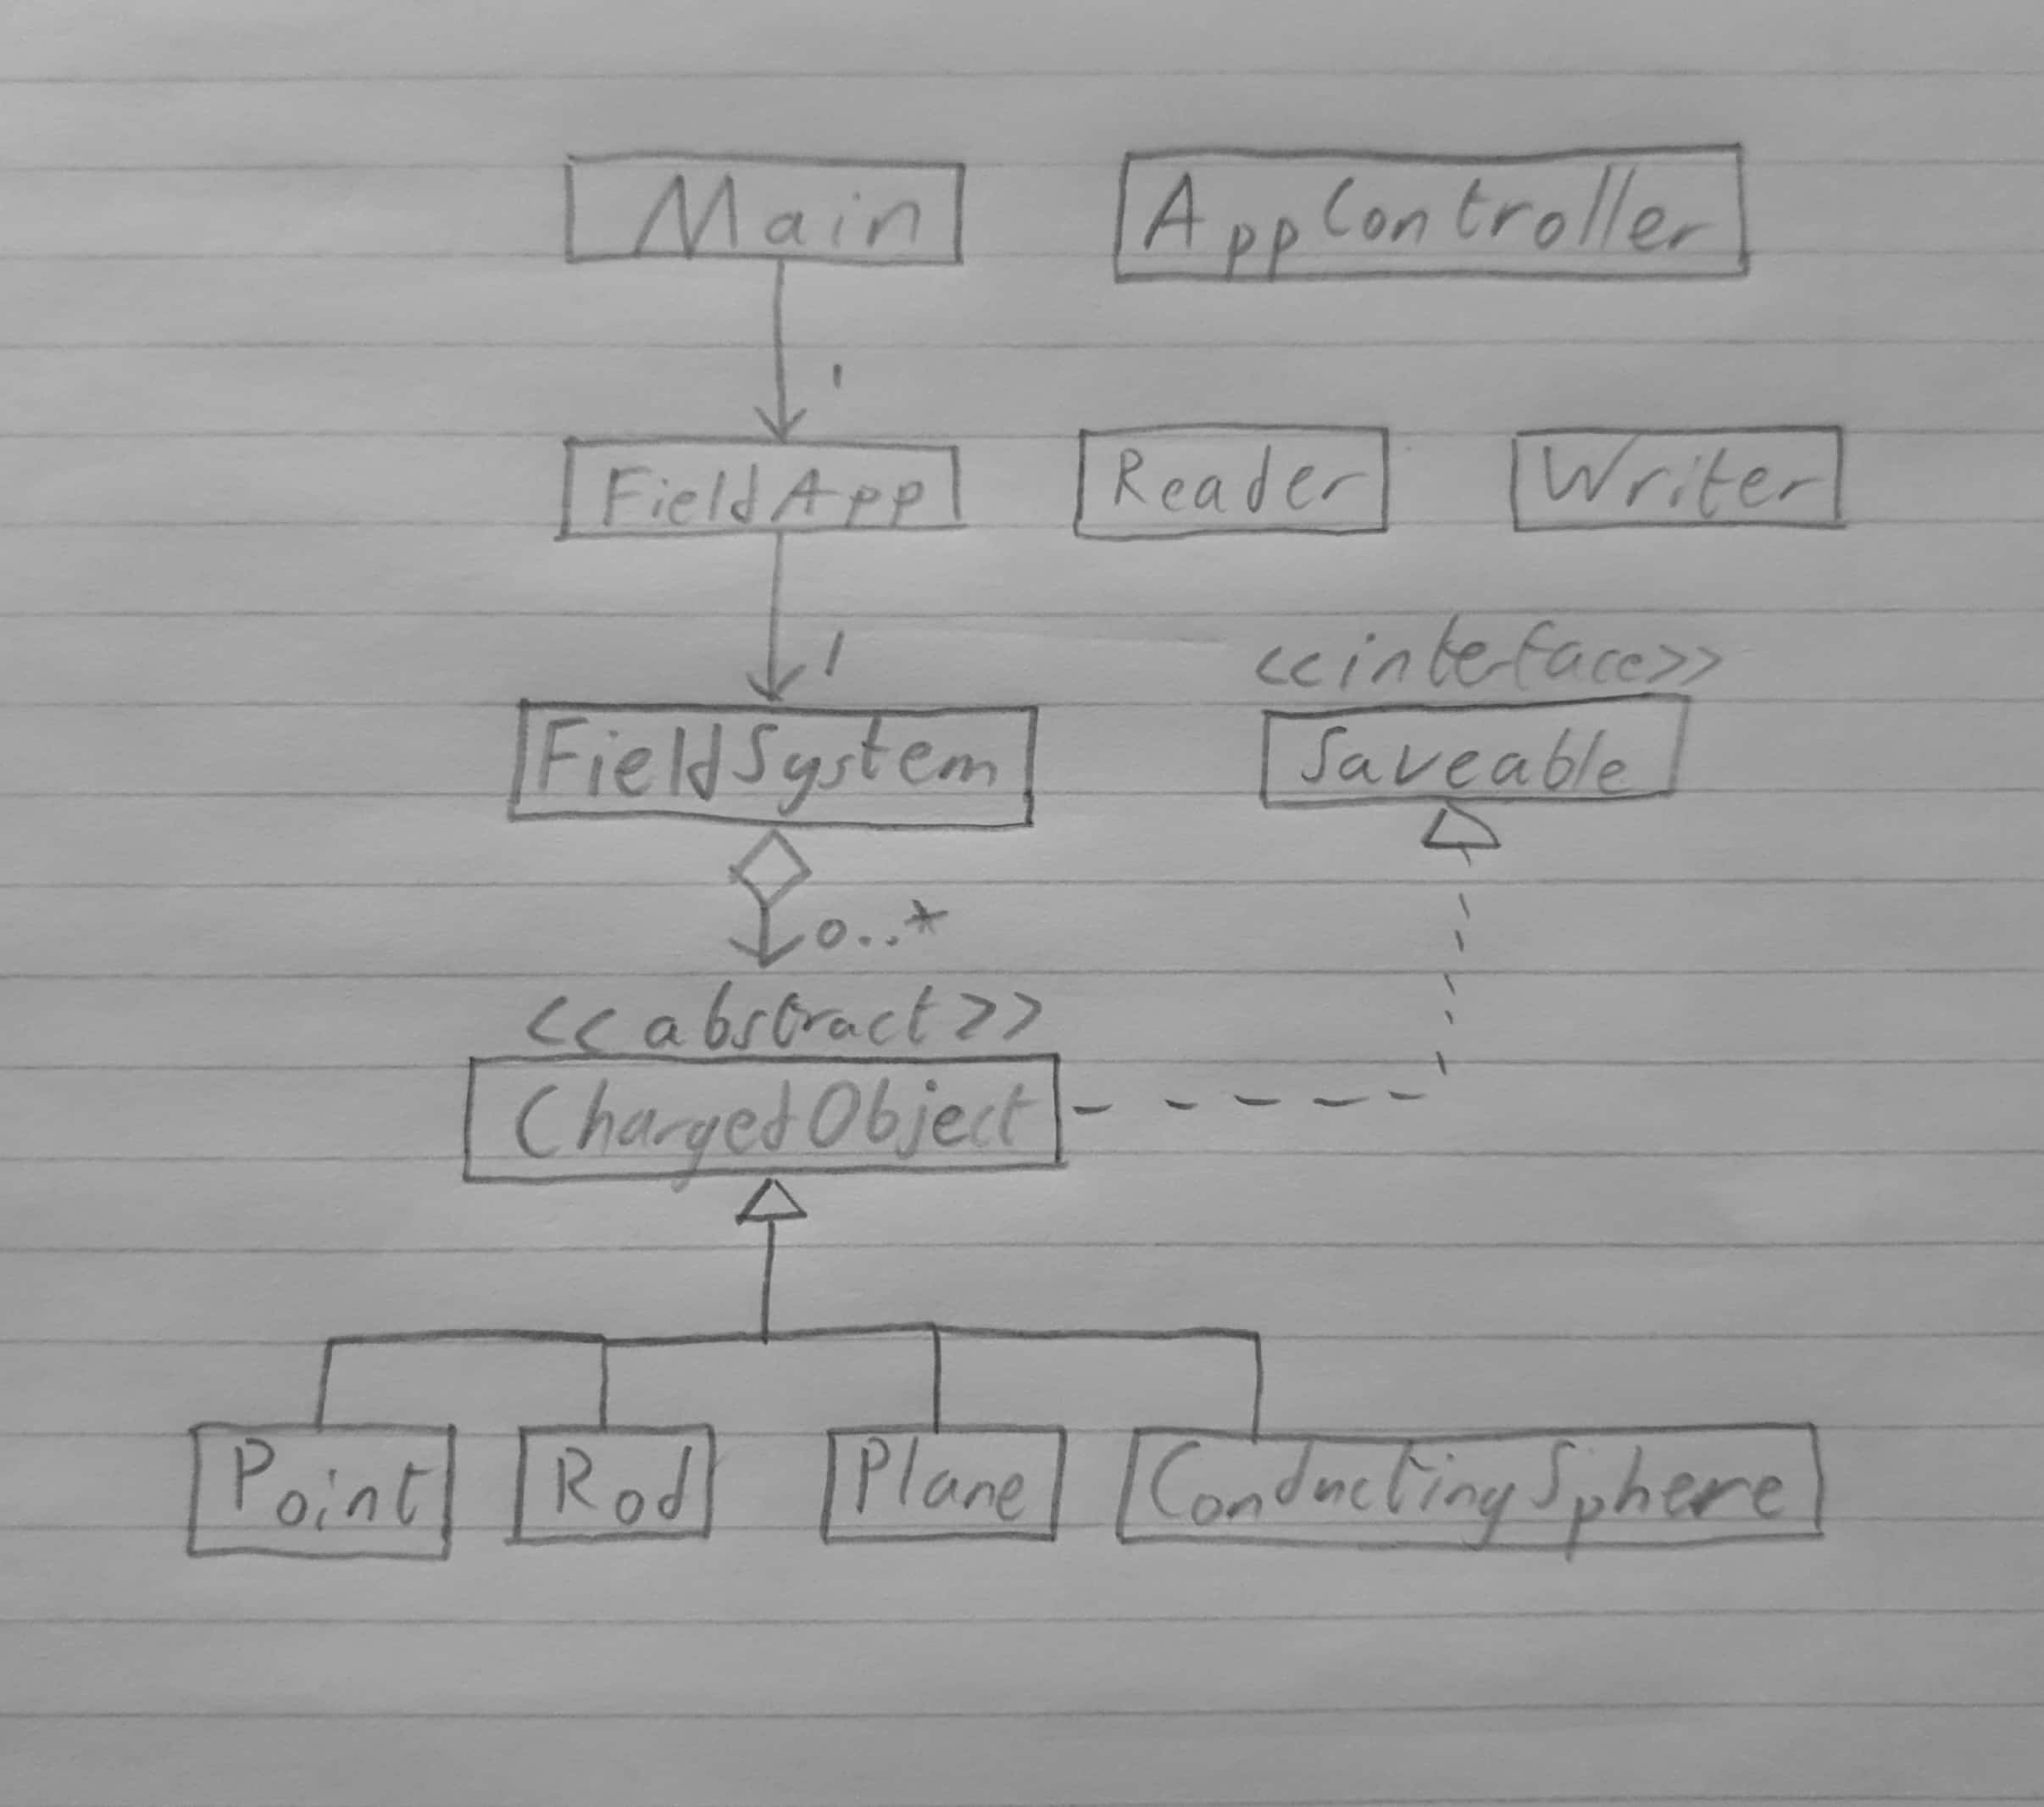 Main AppController
1
FieldApp Reader Writer
1
<<interface>>
FieldSystem Saveable
0..*
<<abstract>>
ChargedObject
Point Rod Plane ConductingSphere